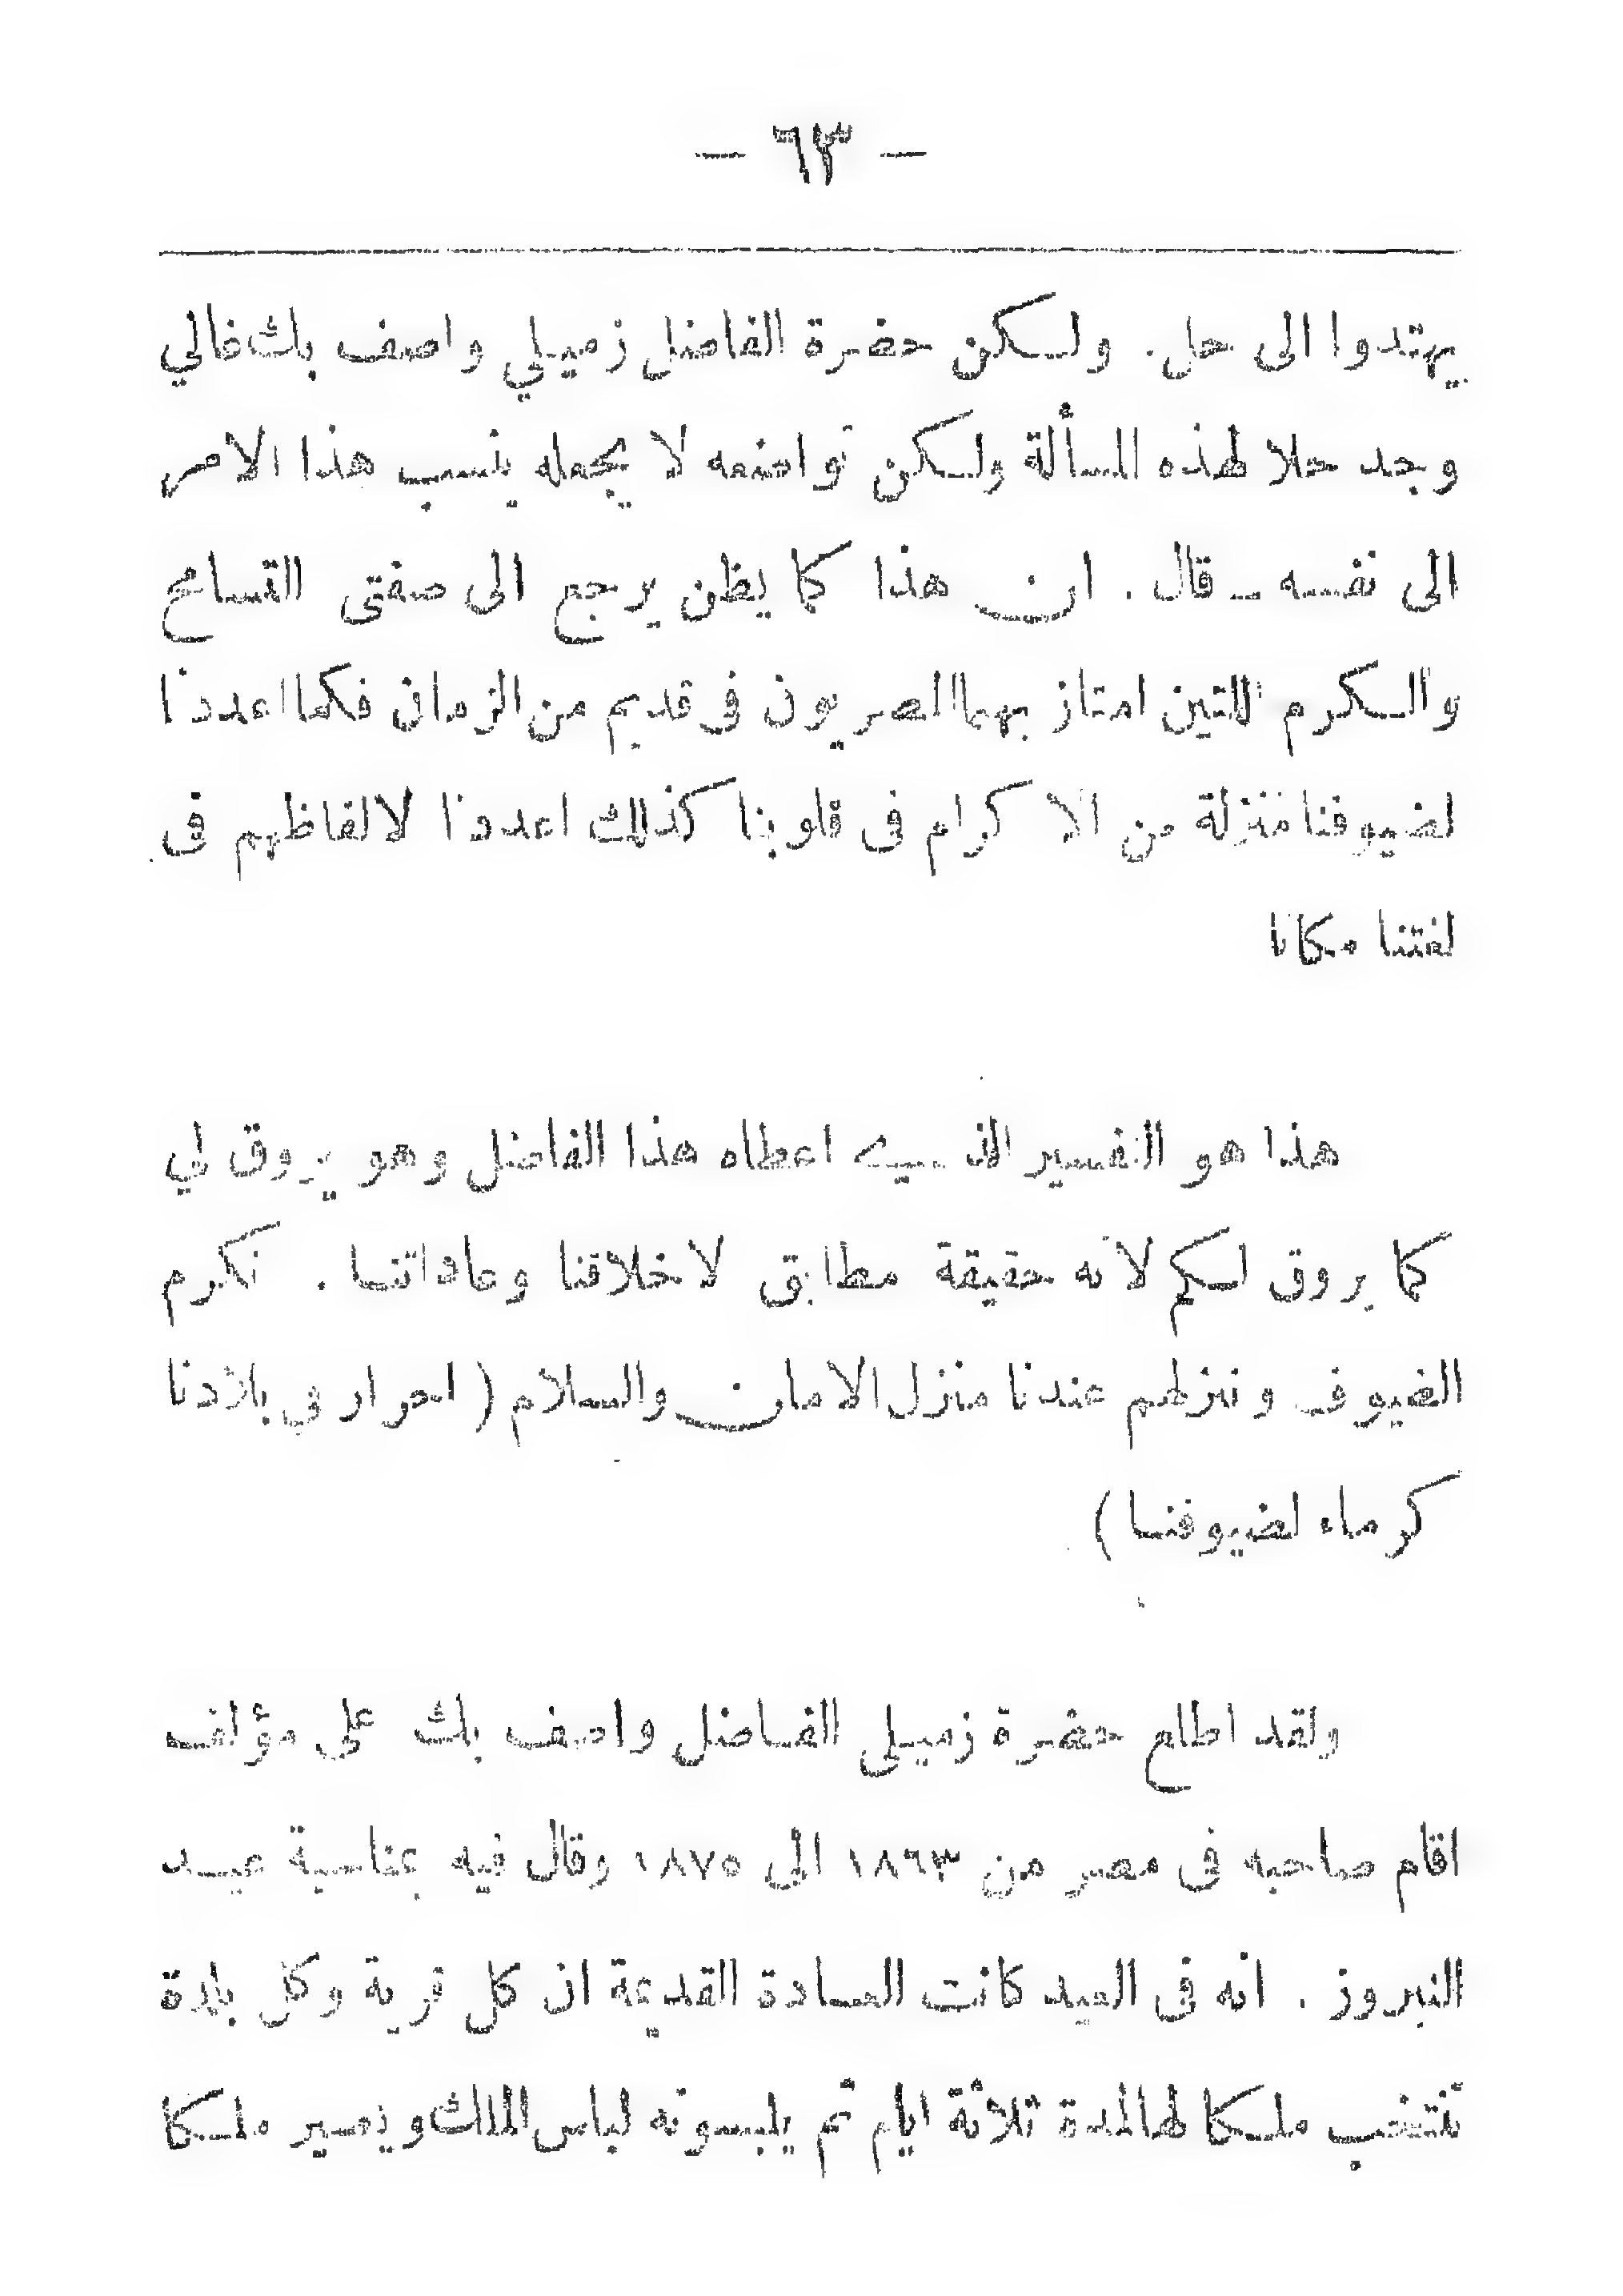 — ٦٣ —
يهتدوا الى حل. ولكن حضرة الفاضل زميلي واصف بك غالي
وجد حلا لهذه المسألة ولكن تواضعه لا يجعله ينسب هذا الامر
الى نفسه ـ قال . ان هذا كما يظن يرجع الى صفتى التسامح
والكرم اللتين امتاز بهما المصريون فى قديم من الزمان فكما اعددنا
لضيوفنا منزلة من الاكرام فى قلوبنا كذلك اعددنا لالفاظهم فى
لغتنا مكانا
هذا هو التفسير الذي اعطاه هذا الفاضل وهو يروق لي
كما يروق لكم لانه حقيقة مطابق لاخلاقنا وعاداتنا . نكرم
الضيوف وننزلهم عندنا منزل الامان والسلام ( احرار في بلادنا
كرماء لضيوفنا )
ولقد اطلع حضرة زميلى الفاضل واصف بك على مؤلف
اقام صاحبه فى مصر من ١٨٦٣ الى ١٨٧٥ وقال فيه بمناسبة عيد
النيروز . انه فى العيد كانت العادة القديمة ان كل قرية وكل بلدة
تنتخب ملكا لها لمدة ثلاثة ايام ثم يلبسونه لباس الملك ويصير ملكا